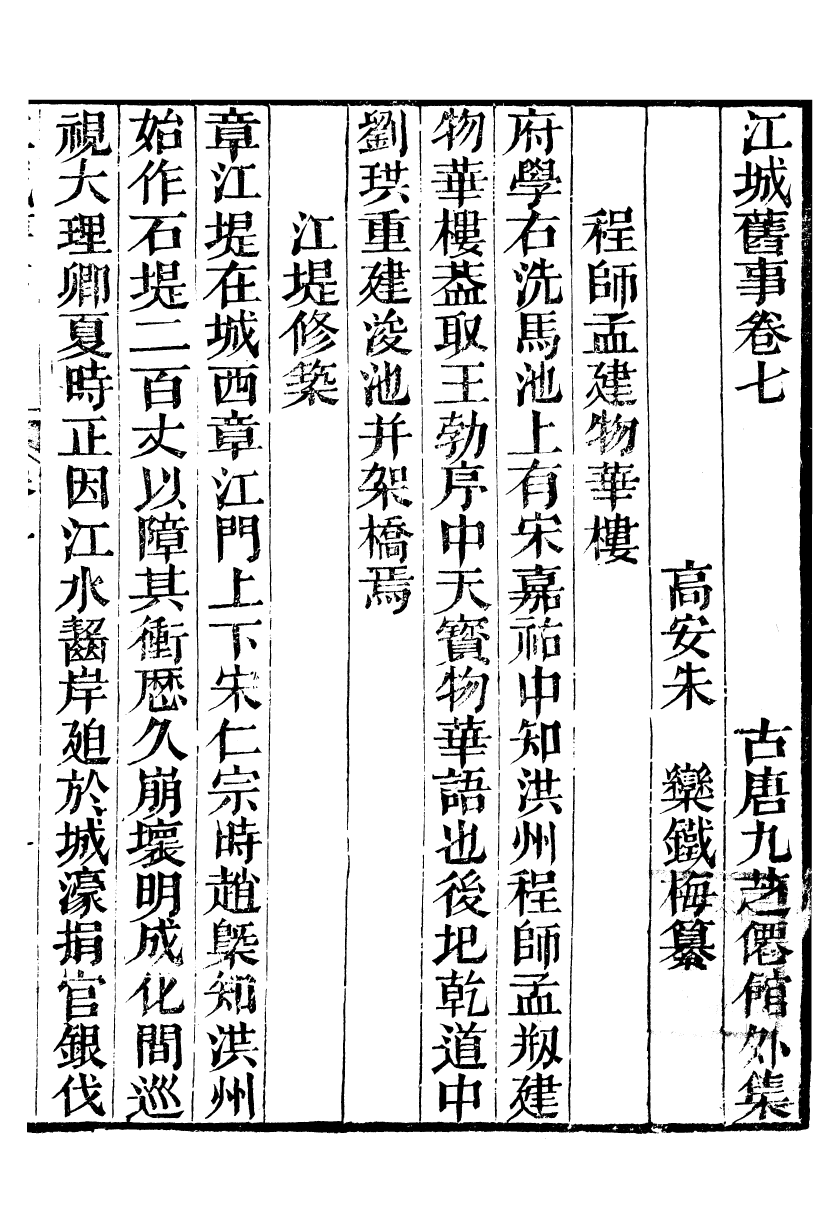 江城舊事卷七
古唐九芝僊館外集
高安朱　欒鐵梅纂
程師孟建物華樓
府學右洗馬池上有宋嘉祐中知洪州程師孟剏建
物華樓葢取王勃序中天寶物華語也後圯乾道中
劉珙重建浚池并架橋焉
江堤修築
章江堤在城西章江門上下宋仁宗時趙槩知洪州
始作石堤二百丈以障其衝歴久崩壞明成化間巡
視大理卿夏時正因江水齧岸廹於城濠捐官銀伐